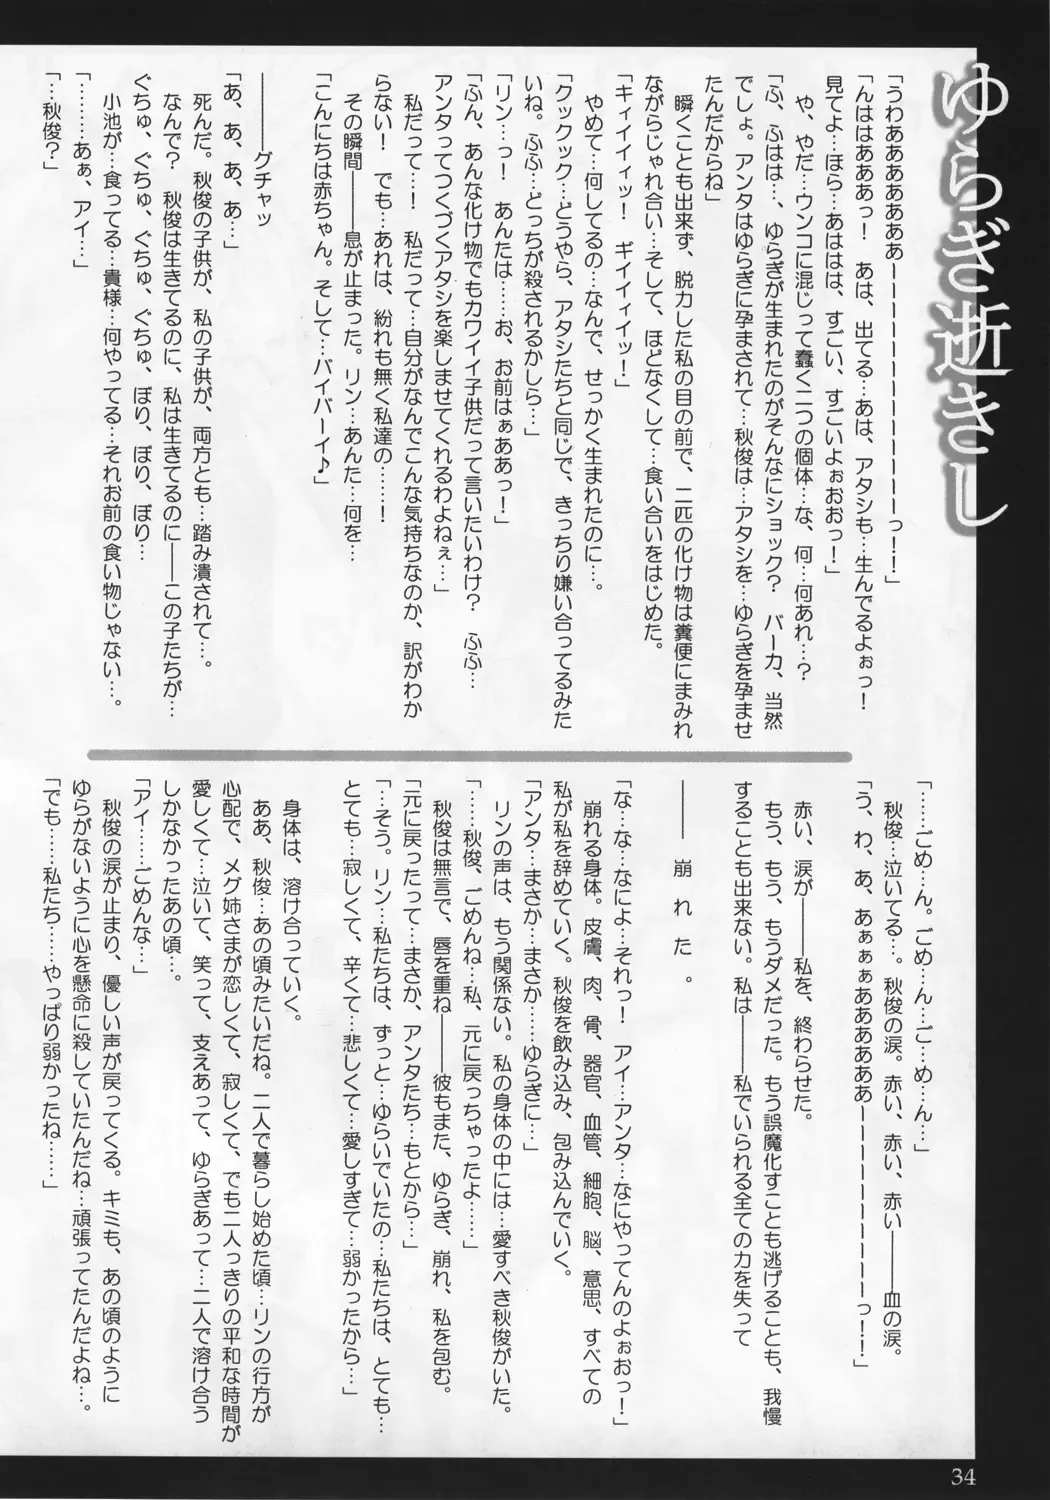 ゆらぎ逝きし
「うわあああああああーーーーーーーーーーーーっ！！」
「んははあああっ！　あは、出てる…あは、アタシも…生んでるよぉっ！
見てよ…ほら…あははは、すごい、すごいよぉおおっ！」
や、やだ…ウンコに混じって蠢く二つの個体…な、何…何あれ…？
「ふ、ふはは…、ゆらぎが生まれたのがそんなにショック？　バーカ、当然
でしょ。アンタはゆらぎに孕まされて…秋俊は…アタシを…ゆらぎを孕ませ
たんだからね」
瞬くことも出来ず、脱力した私の目の前で、二匹の化け物は糞便にまみれ
ながらじゃれ合い…そして、ほどなくして…食い合いをはじめた。
「キィイイィッ！　ギイイィイッ！」
やめて…何してるの…なんで、せっかく生まれたのに…。
「クックック…どうやら、アタシたちと同じで、きっちり嫌い合ってるみた
いね。ふふ…どっちが殺されるかしら…」
「リン…っ！　あんたは……お、お前はぁああっ！」
「ふん、あんな化け物でもカワイイ子供だって言いたいわけ？　ふふ…
アンタってつくづくアタシを楽しませてくれるわよねぇ…」
私だって…！　私だって…自分がなんでこんな気持ちなのか、訳がわか
らない！　でも…あれは、紛れも無く私達の……！
その瞬間――――息が止まった。リン…あんた…何を…
「こんにちは赤ちゃん。そして…バイバーイ♪」
――――――グチャッ
「あ、あ、あ、あ…」
死んだ。秋俊の子供が、私の子供が、両方とも…踏み潰されて…。
なんで？　秋俊は生きてるのに、私は生きてるのに――この子たちが…
ぐちゅ、ぐちゅ、ぐちゅ、ぐちゅ、ぼり、ぼり、ぼり…
小池が…食ってる…貴様…何やってる…それお前の食い物じゃない…。
「………あぁ、アイ…」
「…秋俊？」
「……ごめ…ん。ごめ…ん…ご…め…ん…」
秋俊…泣いてる…。秋俊の涙。赤い、赤い、赤い――――血の涙。
「う、わ、あ、あぁぁぁああああああーーーーーーーーーーっ！！」
赤い、涙が――――私を、終わらせた。
もう、もう、もうダメだった。もう誤魔化すことも逃げることも、我慢
することも出来ない。私は――――私でいられる全ての力を失って
――――　崩　れ　た　。
「な…な…なによ…それっ！　アイ…アンタ…なにやってんのよぉおっ！」
崩れる身体。皮膚、肉、骨、器官、血管、細胞、脳、意思、すべての
私が私を辞めていく。秋俊を飲み込み、包み込んでいく。
「アンタ…まさか…まさか……ゆらぎに…」
リンの声は、もう関係ない。私の身体の中には…愛すべき秋俊がいた。
「……秋俊、ごめんね…私、元に戻っちゃったよ……」
秋俊は無言で、唇を重ね――――彼もまた、ゆらぎ、崩れ、私を包む。
「元に戻ったって…まさか、アンタたち…もとから…」
「…そう。リン…私たちは、ずっと…ゆらいでいたの…私たちは、とても…
とても…寂しくて、辛くて…悲しくて…愛しすぎて…弱かったから…」
身体は、溶け合っていく。
ああ、秋俊…あの頃みたいだね。二人で暮らし始めた頃…リンの行方が
心配で、メグ姉さまが恋しくて、寂しくて、でも二人っきりの平和な時間が
愛しくて…泣いて、笑って、支えあって、ゆらぎあって…二人で溶け合う
しかなかったあの頃…。
「アイ……ごめんな…」
秋俊の涙が止まり、優しい声が戻ってくる。キミも、あの頃のように
ゆらがないように心を懸命に殺していたんだね…頑張ってたんだよね…。
「でも……私たち……やっぱり弱かったね……」
34